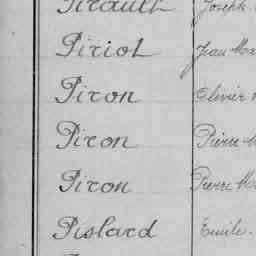 Pirault Joseph
Piriol Jean Ma
Piron Olivier
Piron Pierre
Piron Pierre Ma
Pislard Emile.